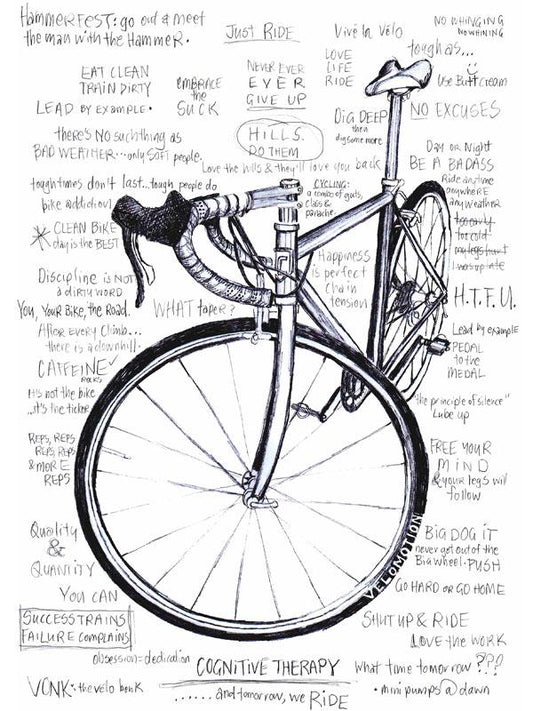 HAMMERFEST: go out & meet
the man with the HAMMER.
JUST RIDE
Vivé la Vélo
NO WHINGING
NO WHINING
LOVE
LIFE
RIDE
tough as...
EAT CLEAN
TRAIN DIRTY
EMBRACE
the
SUCK
NEVER EVER
EVER
GIVE UP
Use Butt cream
LEAD BY EXAMPLE.
DIG DEEP
then
dig some more
NO EXCUSES
there's no such thing as
BAD WEATHER...only SOFT people.
HILLS.
DO THEM
Love the hills & they'll love you back
Day or Night
BE A BADASS
Ride anytime
anywhere
any weather
too early
too cold
my legs hurt
I was up late
tough times don't last...tough people do
bike addiction!
CYCLING:
a combo of guts,
class &
panache.
CLEAN BIKE
day is the BEST
Happiness
is perfect
chain
tension
Discipline is NOT
a dirty word
H.T.F.U.
You, Your Bike, the Road.
WHAT taper?
After EVERY Climb...
there is a downhill.
Lead by example
PEDAL
to the
MEDAL
CAFFEINE
ROCKS
It's not the bike
..it's the ticker
"the principle of silence"
Lube up
REPS, REPS
REPS, REPS
& MORE
REPS
FREE YOUR
MIND
& your legs will
follow
Quality
&
QUANTITY
BIG DOG IT
never get out of the
Big wheel. PUSH
VELOMOTION
YOU CAN
GO HARD OR GO HOME
SUCCESS TRAINS
FAILURE COMPLAINS
SHUT UP & RIDE
LOVE the WORK
obsession = dedication
COGNITIVE THERAPY
What time tomorrow ???
VONK. the velo bonk
......and tomorrow, we RIDE
• mini pumps @ dawn